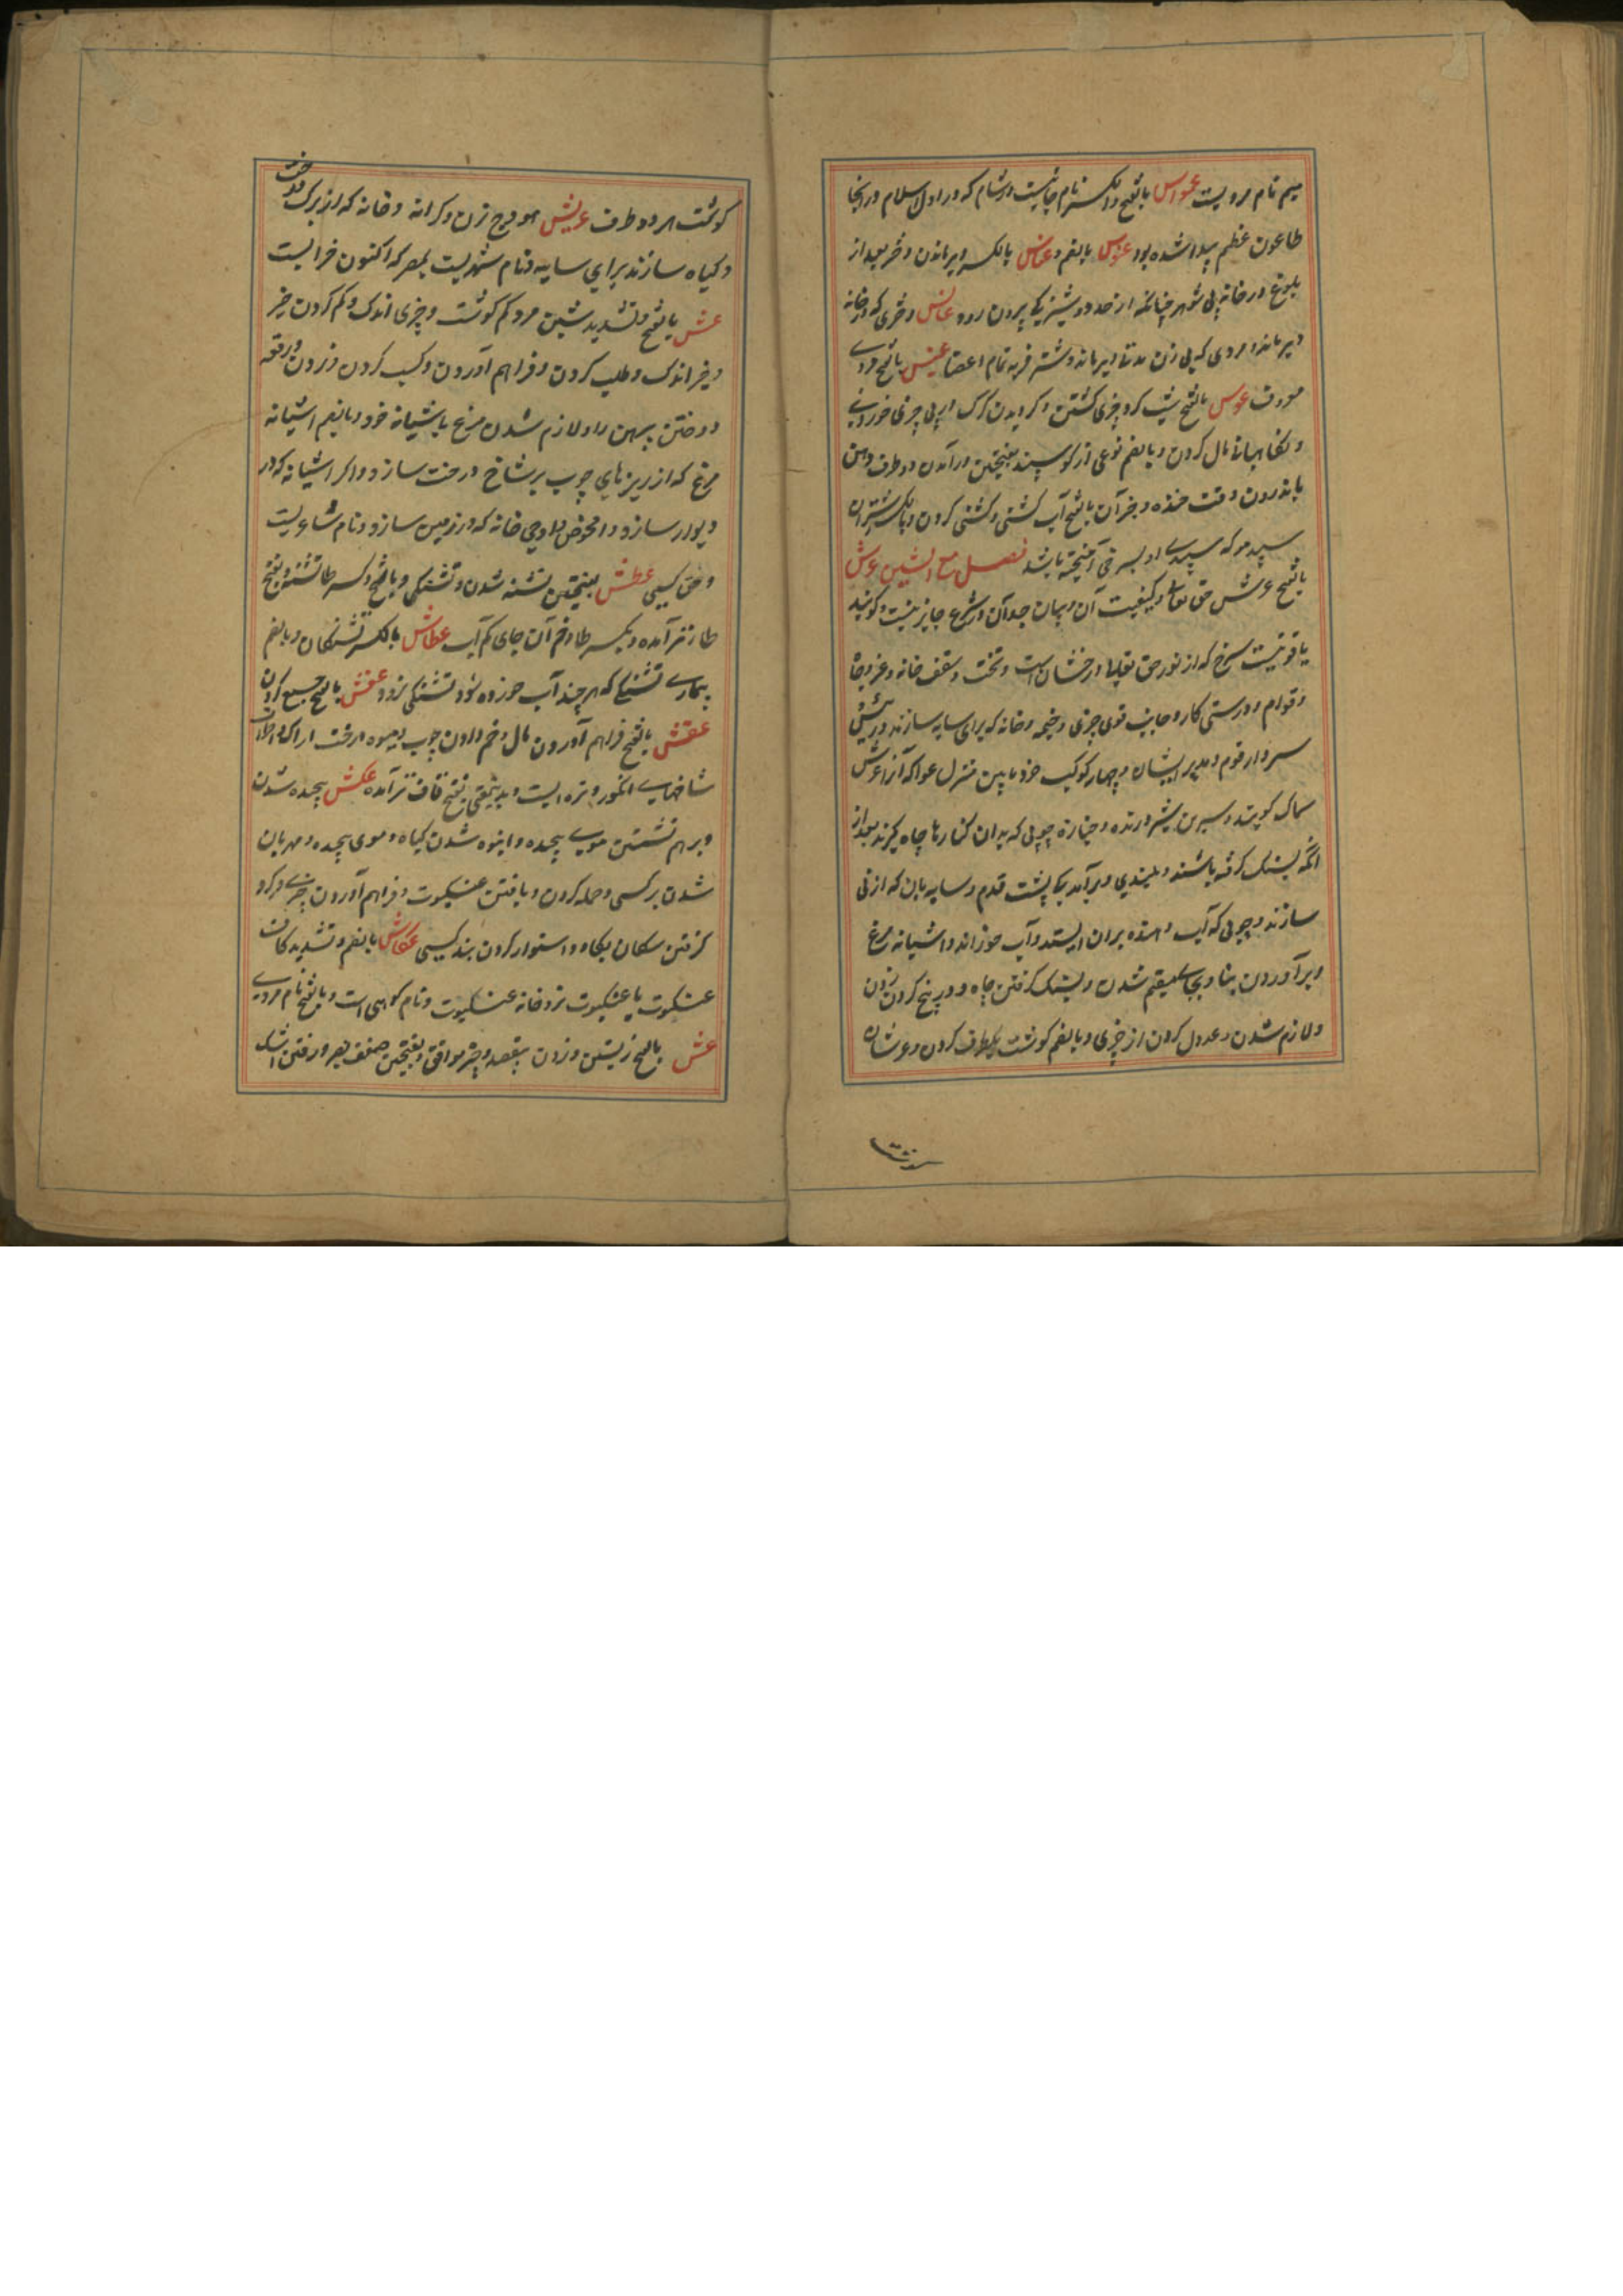 میم نام مردیست عمواس بالفتح والکسر نام جائیست در شام که در اول اسلام در آنجا
طاعون عظیم پیدا شده بود عنوس بالضم و عناس بالکسر دیر ماندن دختر بعد از
بلوغ در خانه بی شوهر چنانکه از حد دوشیزیکی بیرون رود عانس دختری که در خانه
دیر ماند و مردی که بی زن مدتها دیر ماند و شتر فربه تمام اعضا عنبس بالفتح مردی
معروف عوس بالفتح بشب گرد چیزی گشتن و گردیدن گرگ در پی چیزی خوردنی
و نگاهبانی مال کردن و بالضم نوعی از گوسپند بفتحتین در آمدن دو طرف دهن
باندرون وقت خنده و جز آن بالفتح آب گشنی و گشنی کردن و بالکسر شتران
سپید مو که سپیدی او بسرخی آمیخته باشد فصل مع الشین عرش
بالفتح عرش حق تعالی و کیفیت آن و بیان حد آن در شرع جایز نیست و گویند
یاقوتیست سرخ که از نور حق تعالی درخشان است و تخت و سقف خانه و عز و جاه
و قوام و درستی کار و جانب قوی چیزی و خیمه و خانه که برای سایه سازند و رئیس و
سردار قوم و مدبر ایشان و چهار کوکب خرد پایین منزل عوا که آنرا عرش
سماک گویند و سیرین شیر درنده و جنازه و چوبی که بدان کنارها چاه گیرند بعد از
آنکه بسنگ گرفته باشند و بلندی و برآمدگی پشت قدم و سایه بان که از نی
سازند و چوبی که آب دهنده بران ایستد و آب خوراند و آشیانه مرغ
و برآوردن بنا و بجایی مقیم شدن و بسنگ گرفتن چاه و در رنج کردن زدن
و لازم شدن و عدول کردن از چیزی و بالضم گوشت یکطرف گردن و عرشان
گوشت هر دو طرف عریش هودج زن و کرانه و خانه که از برگ درخت
و گیاه سازند برای سایه و نام شهریست بمصر که اکنون خرابست
عش بالفتح و تشدید شین مرد کم گوشت و چیزی اندک و کم کردن چیز
و چیز اندک و طلب کردن و فراهم آوردن و کسب کردن و زدن و رقعه
دوختن پیرهن را و لازم شدن مرغ باشیانه خود و بالضم اشیانه
مرغ که از ریزهای چوب بر شاخ درخت سازد و اگر اشیانه که در
دیوار سازد و افحوص و ادحی خانه که در زمین سازد و نام شاعریست
و حق کسی عطش بفتحتین تشنه شدن و تشنگی و بالفتح و کسر طا تشنه و بفتح
طا نیز آمده و بکسر طا و ضم آن جای کم آب عطاش بالکسر تشنگان و بالضم
بیماری تشنگی که هر چند آب خورده شود تشنگی نرود عفش بالفتح جمع کردن
عقش بالفتح فراهم آوردن مال و خم دادن چوب و میوه درخت اراک و اطراف
شاخهای انگور و تره ایست و بدینمعنی بفتح قاف نیز آمده عکش پیچیده شدن
و برهم نشستن موی پیچیده و انبوه شدن گیاه و موی پیچیده و مهربان
شدن بر کسی و حمله کردن و بافتن عنکبوت و فراهم آوردن چیزی و گرد
گرفتن سکان بگاه و استوار کردن بند کسی عکاش بالضم و تشدید کاف
عنکبوت یا عنکبوت نر و خانه عنکبوت و نام کوهی است و بالفتح نام مردی
عمش بالفتح زیستن و زدن بیقصد و چیز موافق و بفتحتین ضعف بصر و رفتن اشک
گوشت